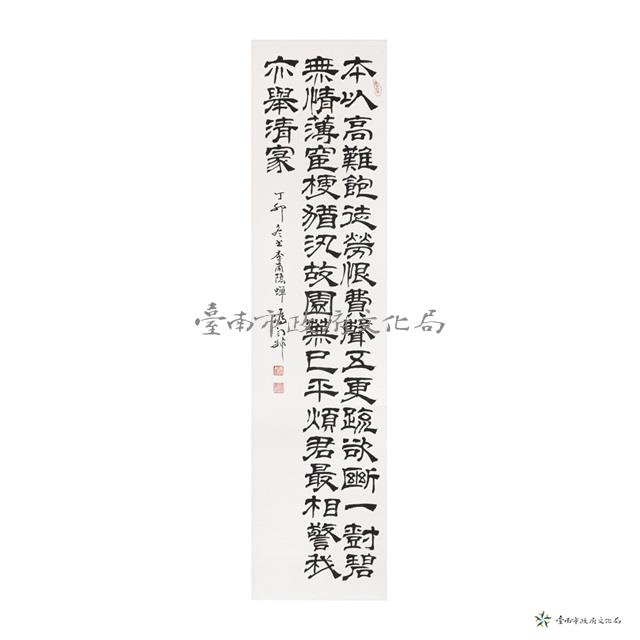 本以高難飽徒勞恨費聲五更疏欲斷一樹碧
無情薄宦梗猶汎故園蕪已平煩君最相警我
亦舉清家
丁卯冬書李商隱蟬
臺南市政府文化局
臺南市政府文化局